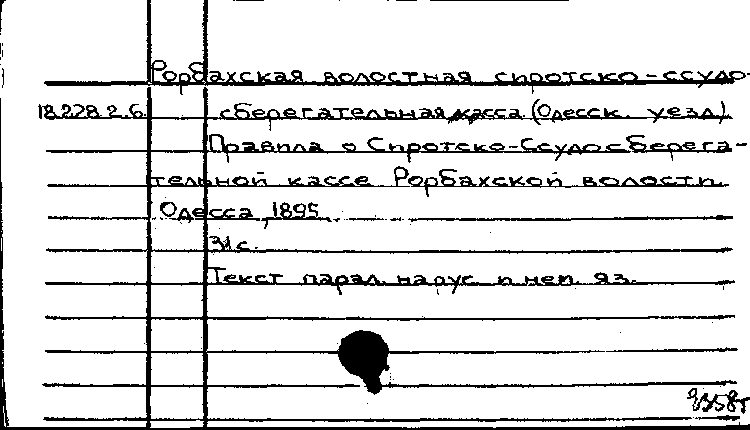 Рорбахская волостная сиротско-ссудо-
18.228.2.6 сберегательная касса (Одесск. уезд)
Правила о Сиротско-Ссудосберега-
тельной кассе Рорбахской волости.
Одесса, 1895.
31 с.
Текст парал. на рус. и нем. яз.